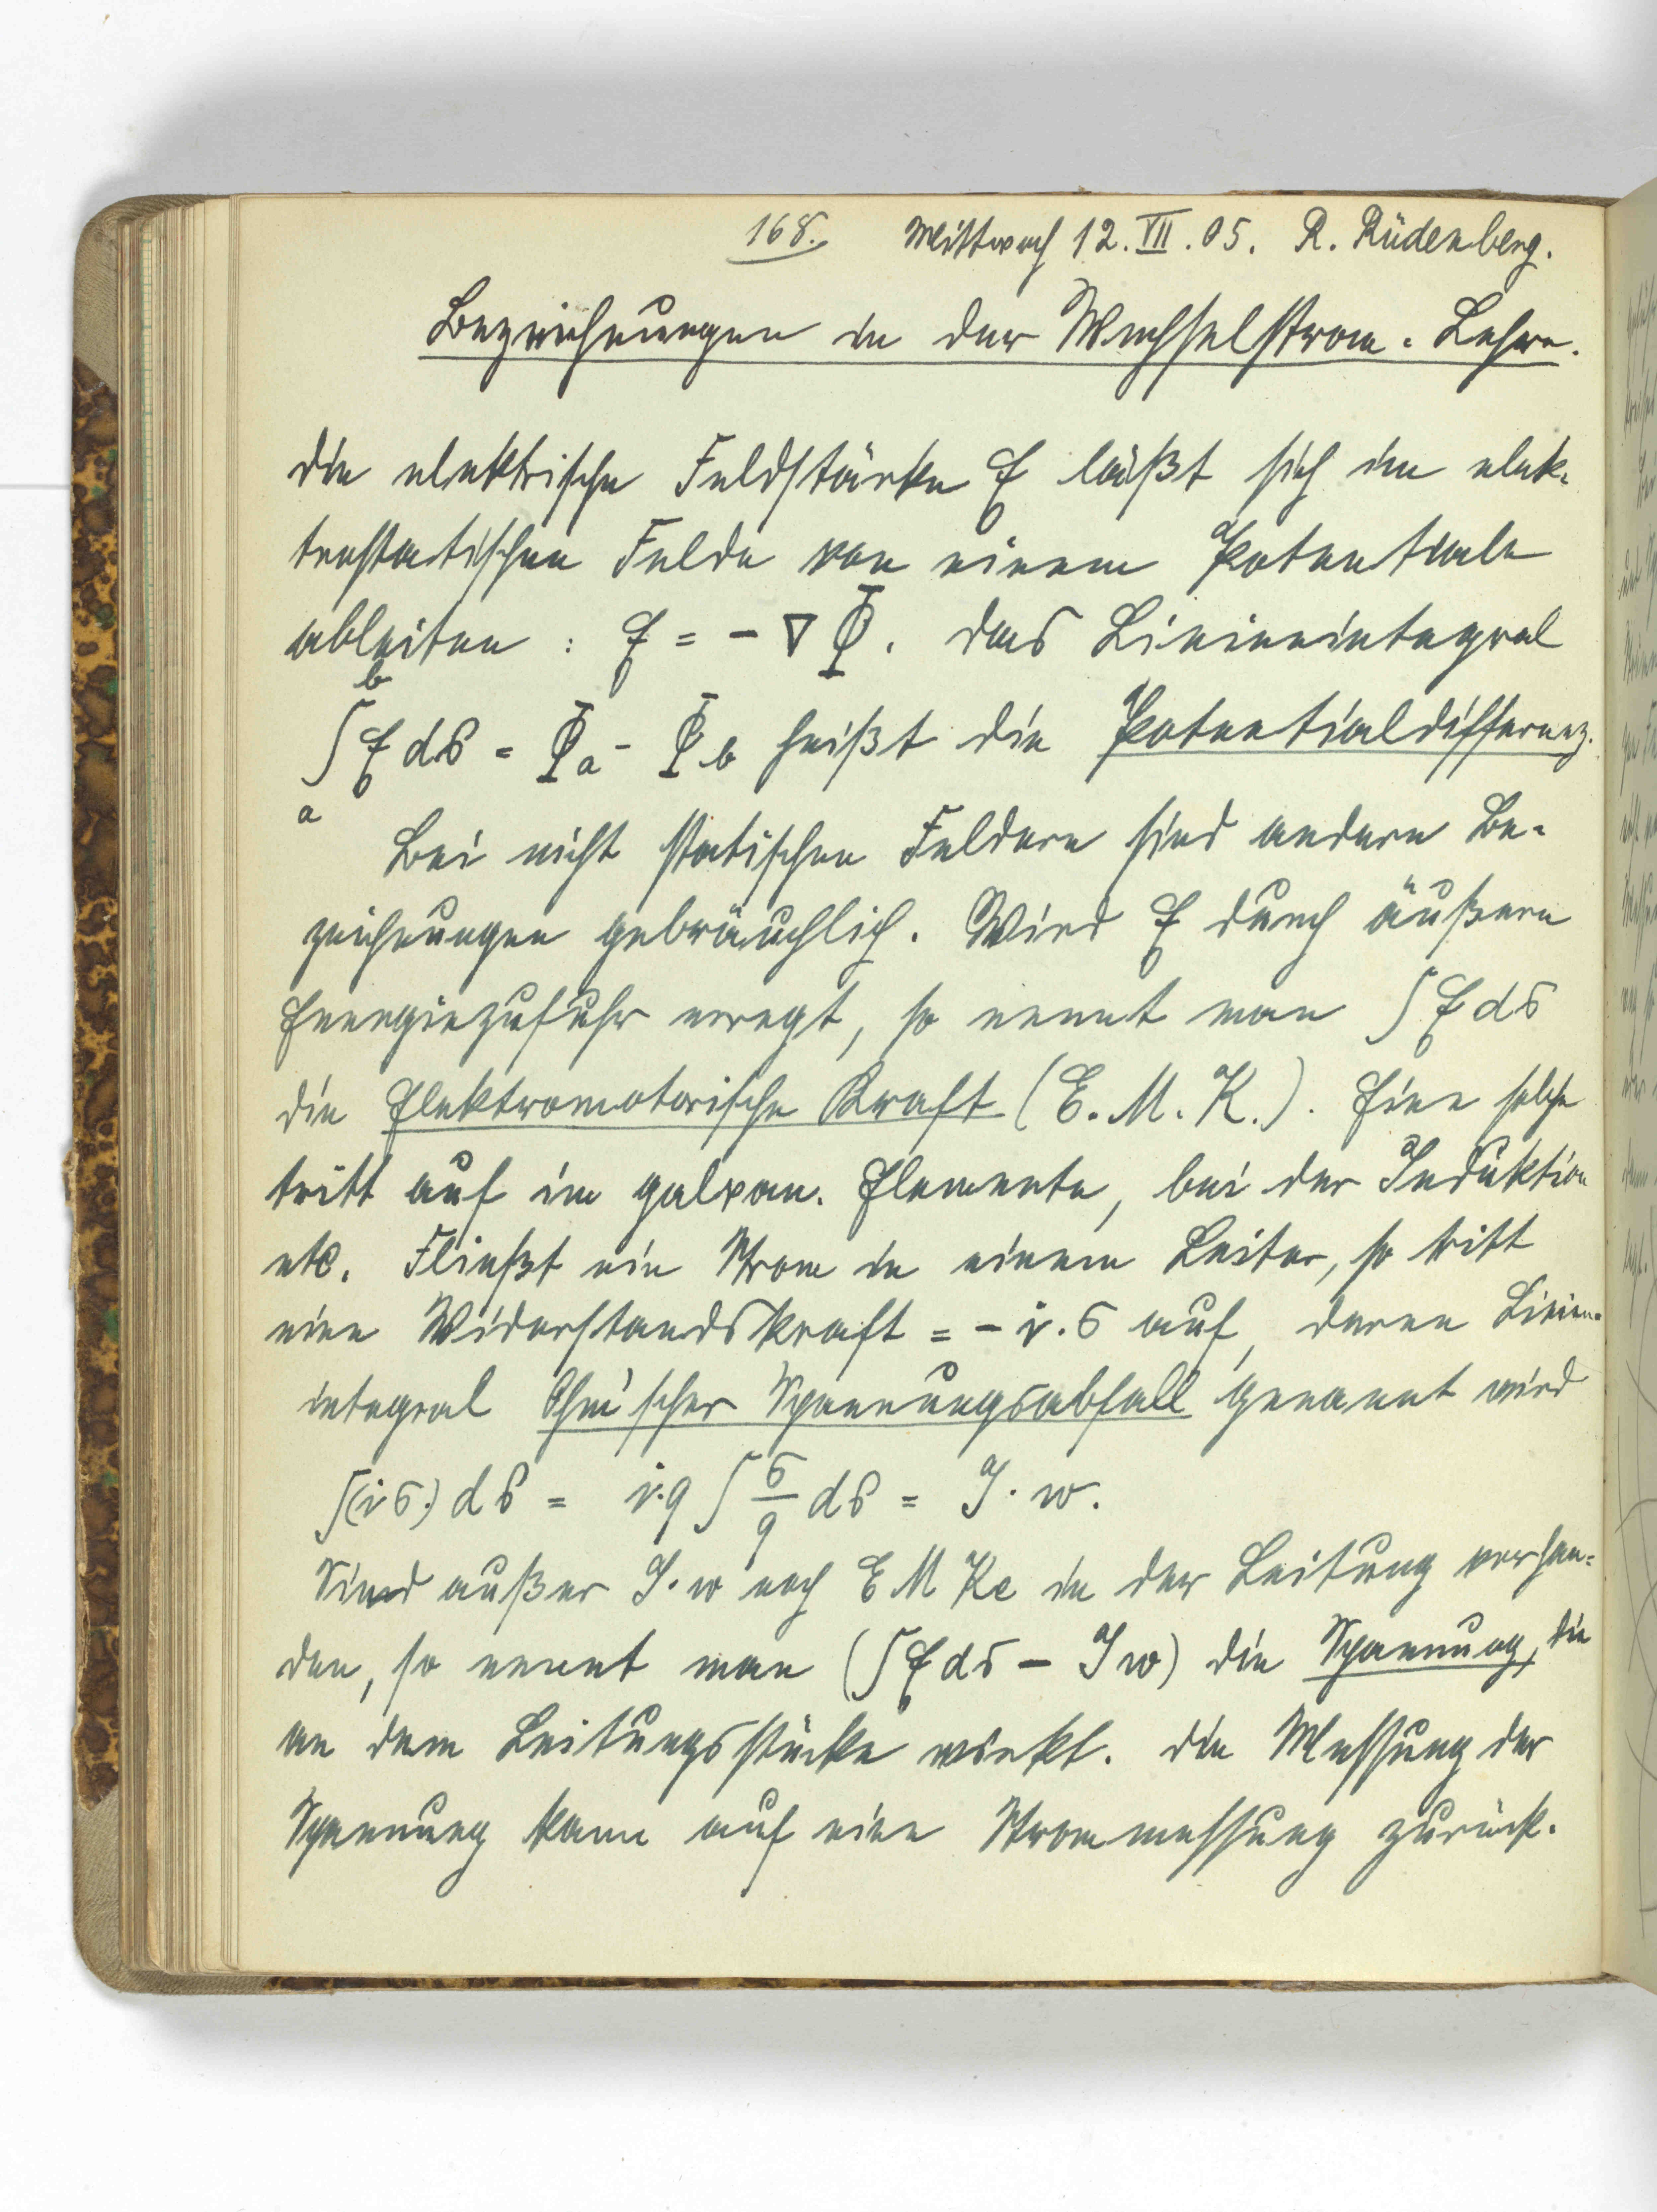 168. Mittwoch 12. VII. 05. R. Rüdenberg.
Bezeichnungen in der Wechselstrom-Lehre.
Die elektrische Feldstärke E läßt sich im elek-
trostatischen Felde von einem Potentiale
ableiten : E = - ∇ Φ. Das Linienintegral
∫ₐᵇ E ds = Φa - Φb heißt die Potentialdifferenz.
Bei nicht statischen Feldern sind andere Be-
zeichnungen gebräuchlich. Wird E durch äußere
Energiezufuhr erregt, so nennt man ∫ E ds
die Elektromotorische Kraft (E. M. K.). Eine solche
tritt auf im galvan. Elemente, bei der Induktion
etc. Fließt ein Strom in einem Leiter, so tritt
eine Widerstandskraft = - i. σ auf, deren Linien-
integral Ohm'scher Spannungsabfall genannt wird
∫(i σ.) ds = i.q ∫ σ/q ds = J. w.
Sind außer J. w noch E M Ke in der Leitung vorhan-
den, so nennt man (∫ E ds - Jw) die Spannung, die
an dem Leitungsstücke wirkt. Die Messung der
Spannung kann auf eine Strommessung zurück-